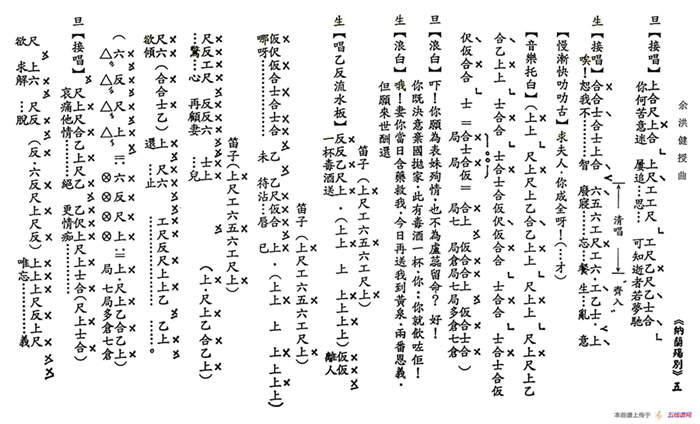 《納蘭殤別》五
余洪健授曲
旦【接唱】上合尺上合 上尺工工尺 工尺乙尺乙士合
你何苦意述 屢追…思… 可知逝者若夢馳
生【接唱】合合士合士上合 六五六工尺工六·工乙士·上
唉!恕我不……智 廢寢……忘…餐 生…亂 意
清唱
齊入
【慢漸快叻叻古】求夫人,你成全呀!(…才)
【音樂托白】(上上 尺上尺上乙合乙上上
合乙上上 士合士合士上合士合仮仮合合
伬仮合合 士=合士合仮=合上 仮合合上 仮合士合
局 局 局七 局倉倉局七倉)
旦【浪白】吓!你願為表妹殉情,也不為盧蕊留命?好!
你既決意棄國拋家,此有毒酒一杯,你…你就飲咗佢!
生【浪白】哦!妻你當日含藥救我,今日再送我到黃泉,兩番恩義,
但願來世酬還
笛子(上尺工六五六工尺上)
生【唱乙反流水板】反反乙尺上·(上上 上 上上上上)仮仮
一杯毒酒送 離人
笛子(上尺工六五六工尺上)
仮伬仮合士合士合 乙 乙尺仮合 上·(上上 上 上上上)
哪呀…… 未 待沾…唇 已
笛子(上尺工六五六工尺上)
尺反工尺 反反六 士上 (上·尺上乙合乙上)
…驚…心 再顧妻 …兒
尺六(合合士乙) 上 上 工尺反尺上上 乙上
欲傾 還…止 ……。
(六·反 尺 上 =:六 反 尺 上:=上·尺上乙合乙上)
局局七局多倉七倉
旦【接唱】尺上尺合乙上尺乙 乙伬上尺上士合(尺上士合)
哀痛他情……絕 更情痴……
尺上六 尺反(反·六反尺上尺反)上上上尺反上尺
欲 求解 …脫 唯忘………義
本曲谱上传于
五线谱网